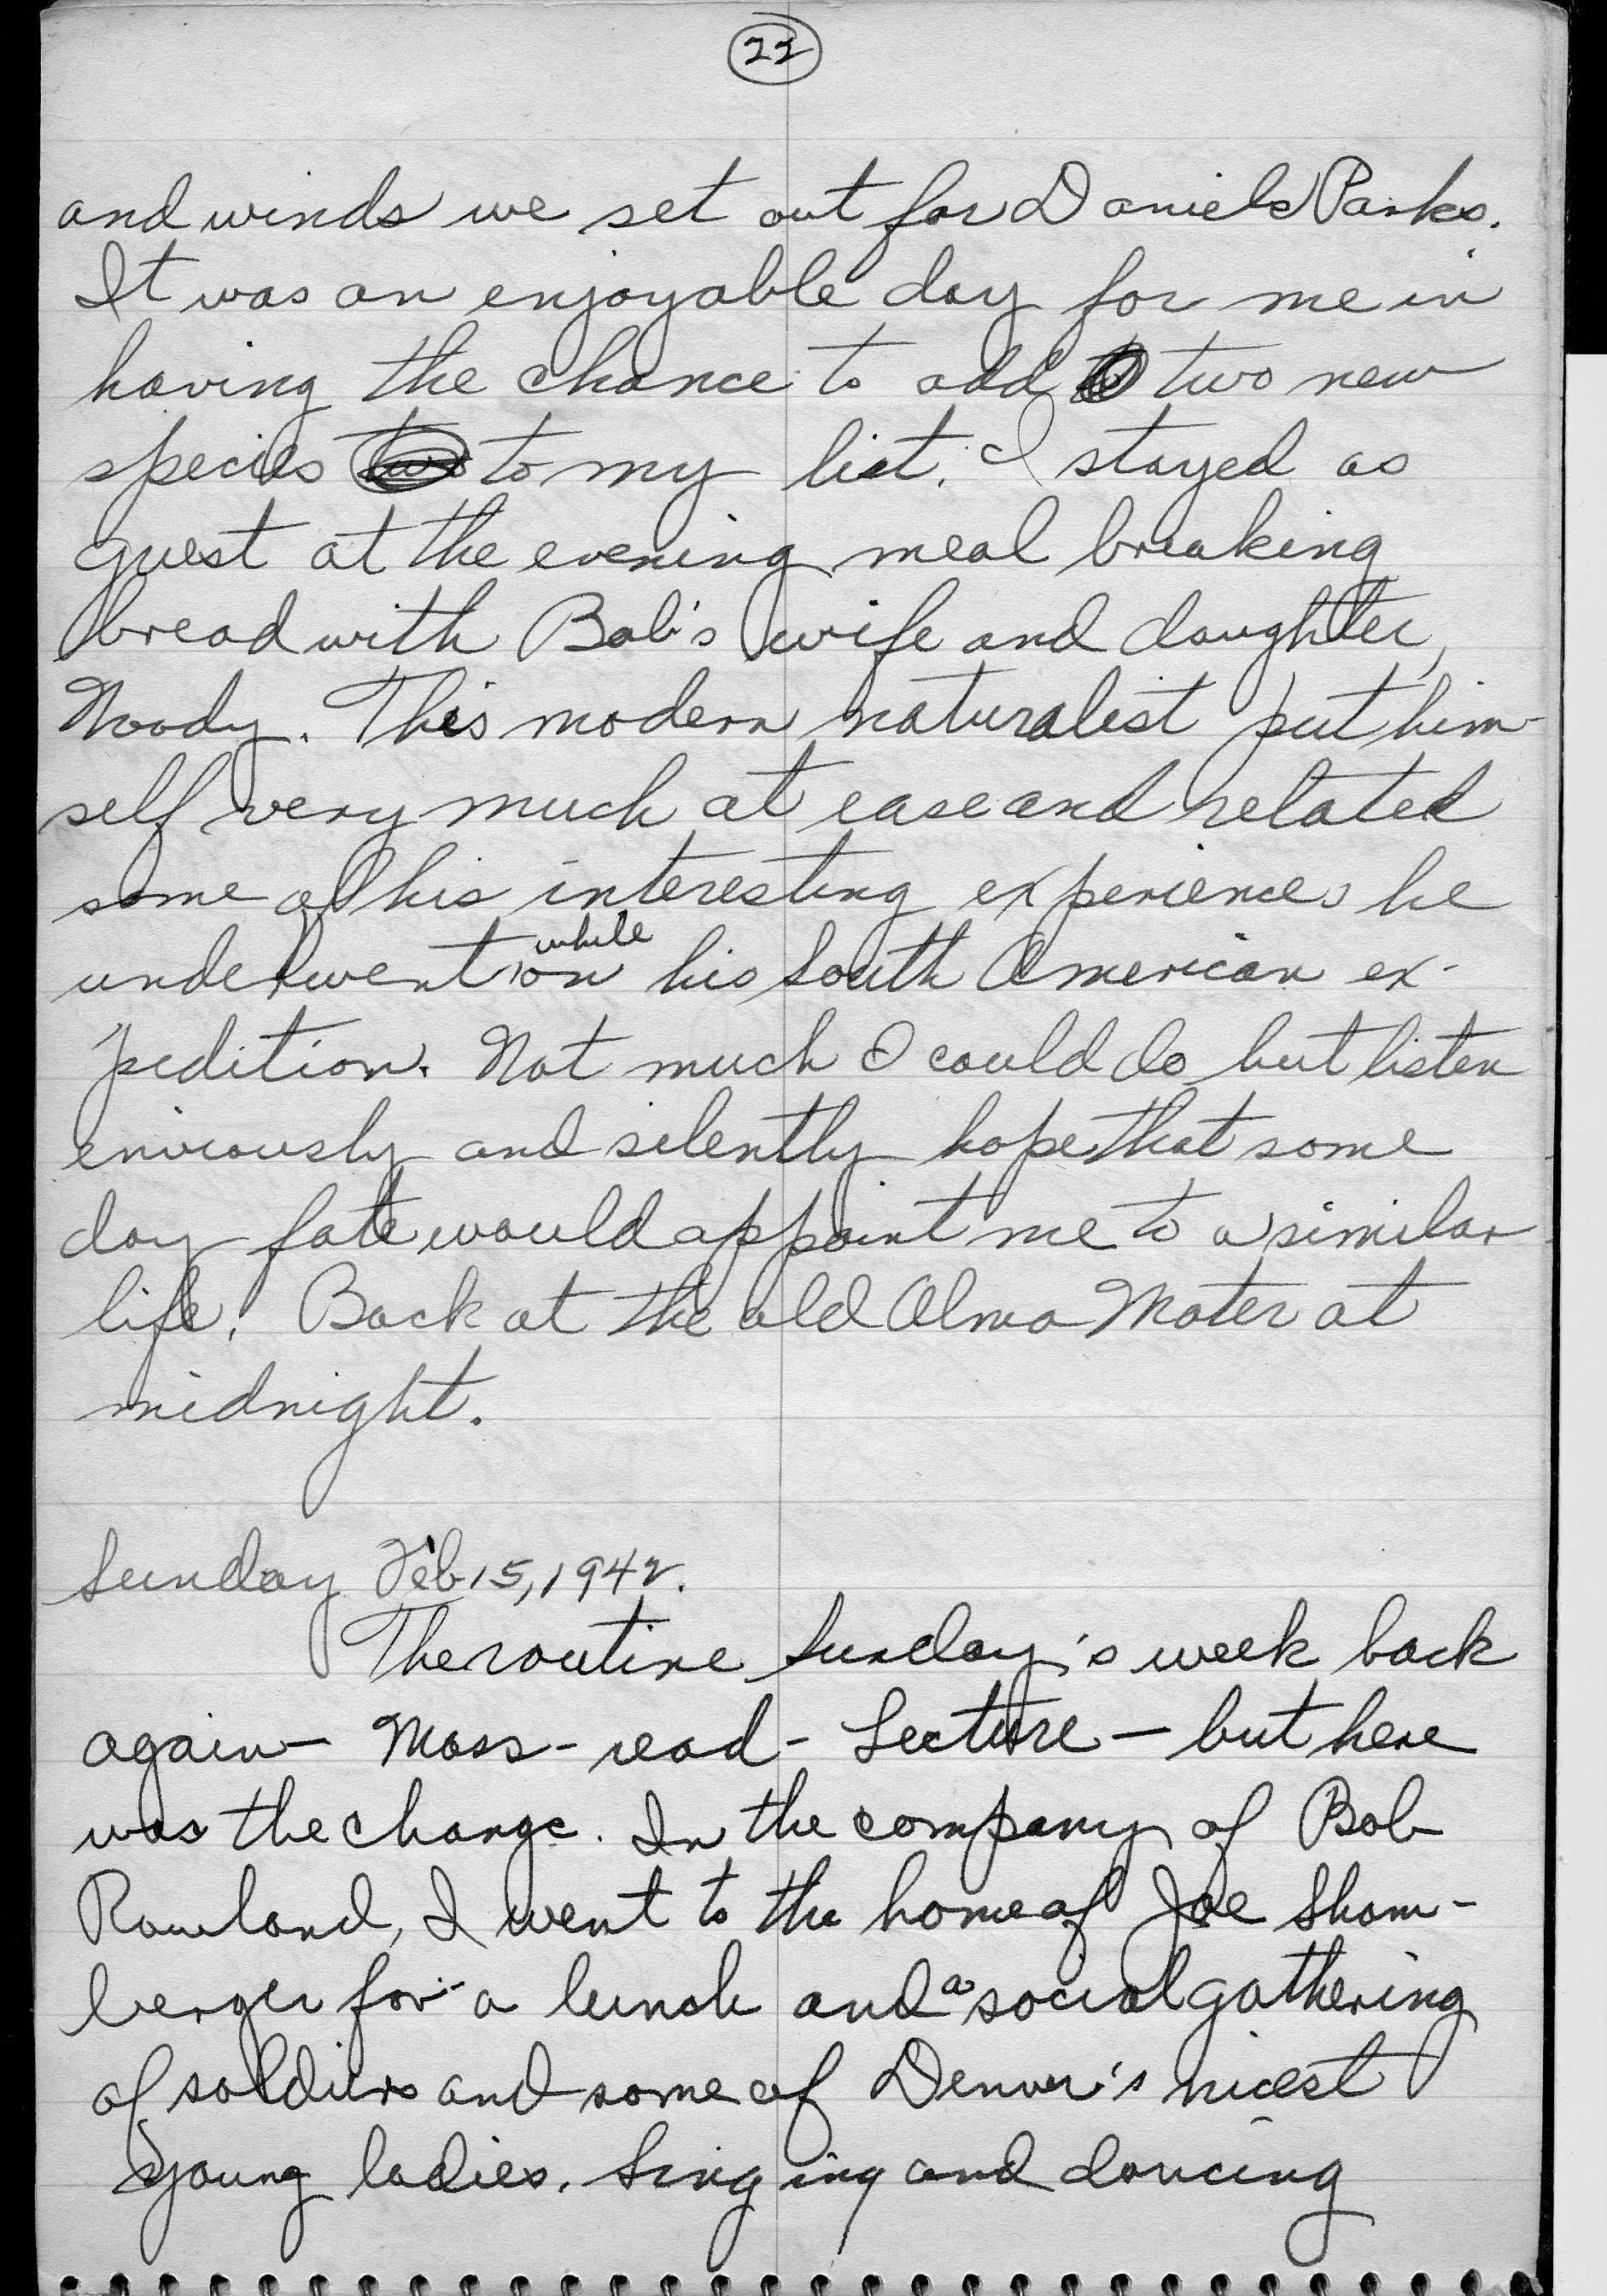 22
and winds we set out for Daniels Parks.
It was an enjoyable day for me in
having the chance to add two new
species to my list. I stayed as
guest at the evening meal breaking
bread with Bob's wife and daughter,
Noody. This modern naturalist put him-
self very much at ease and related
some of his interesting experiences he
underwent while on his South American ex-
pedition. Not much I could do but listen
enviously and silently hope that some
day fate would appoint me to a similar
life. Back at the old Alma Mater at
midnight.
Sunday Feb 15, 1942.
The routine Sunday's week back
again - Mass - read - Lecture - but here
was the change. In the company of Bob
Rowland, I went to the home of Joe Sham-
berger for a lunch and a social gathering
of soldiers and some of Denver's nicest
young ladies. Singing and dancing